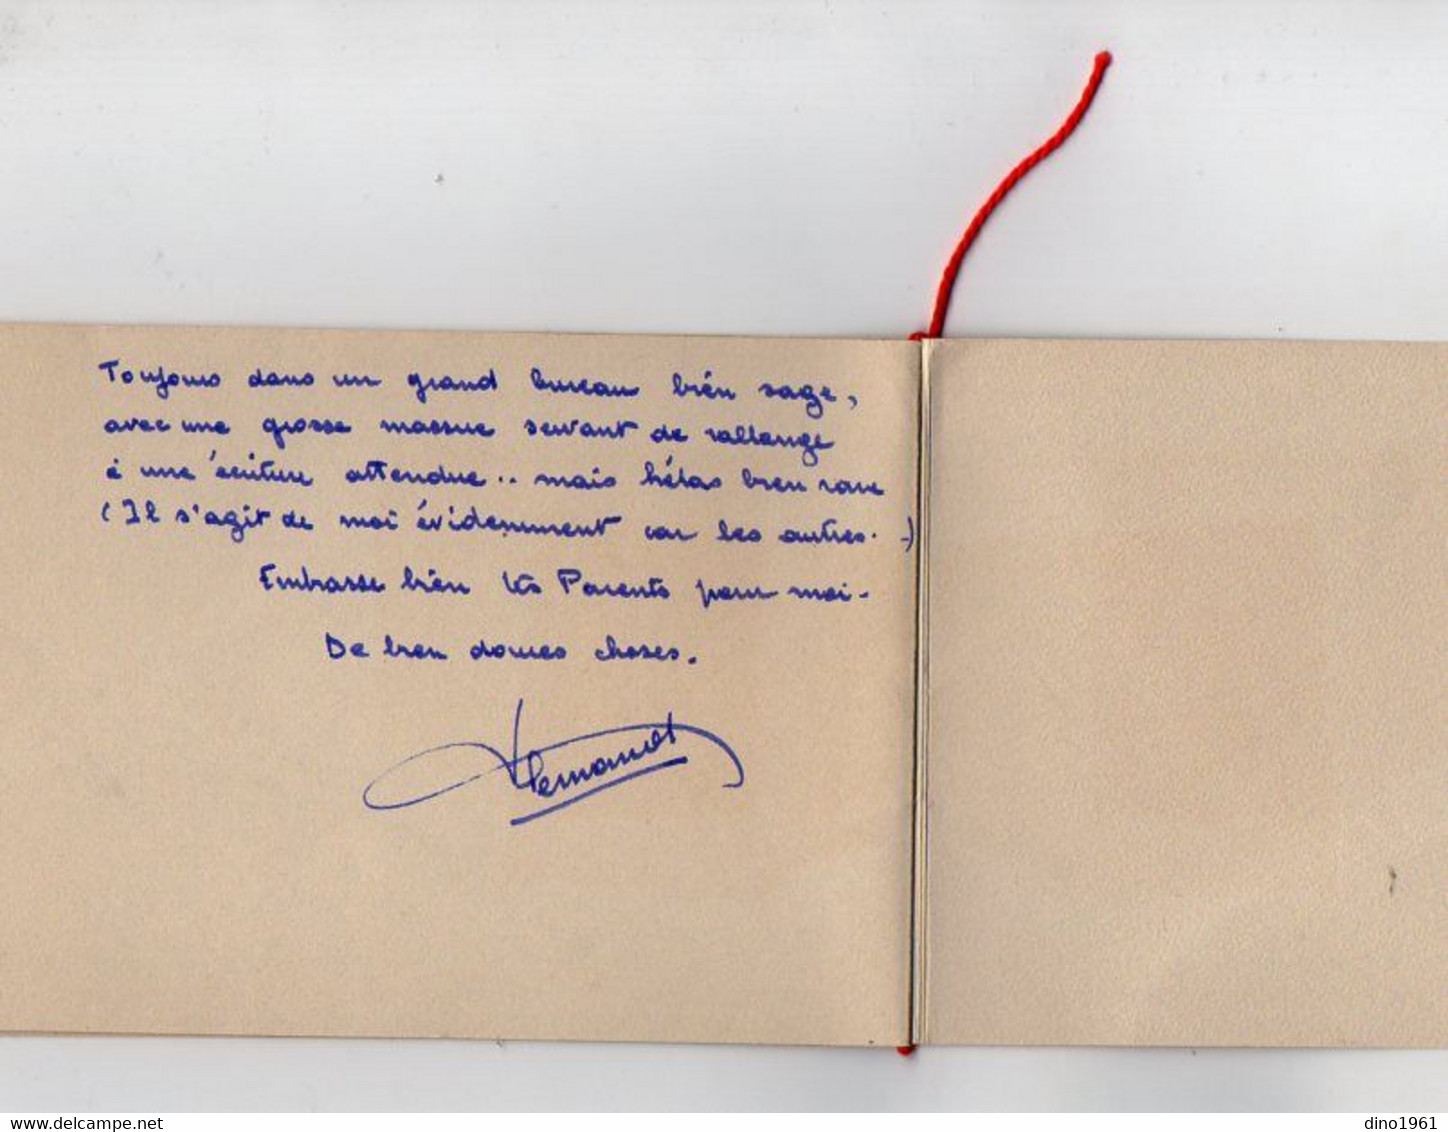 Toujours dans un grand bureau bien sage,
avec une grosse massue servant de rallonge
à une écriture attendue.. mais hélas bien rare
(Il s'agit de moi évidemment car les autres. -)
Embrasse bien tes Parents pour moi.
De bien douces choses.
delcampe.net
dino1961